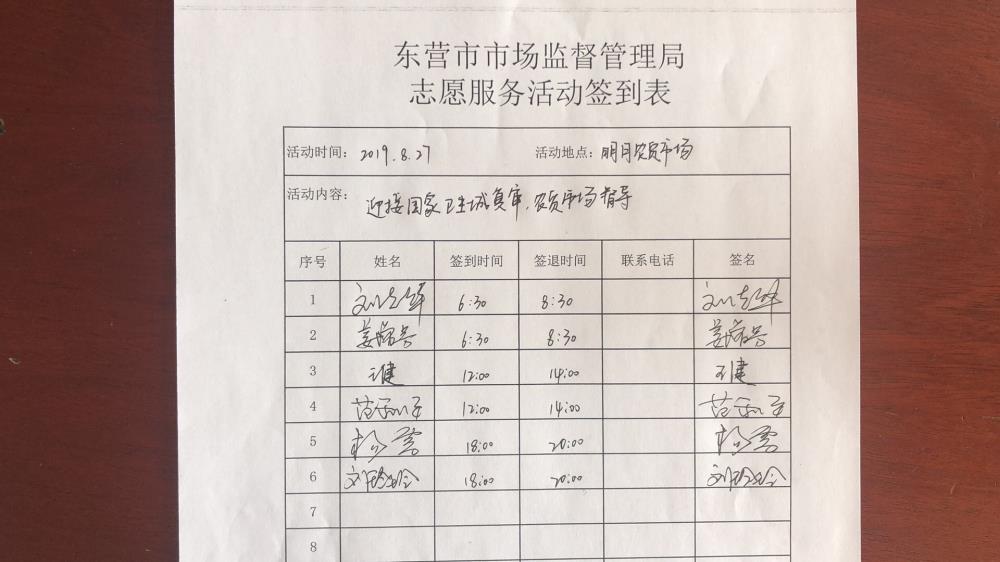 东营市市场监督管理局
志愿服务活动签到表
活动时间：2019.8.27 活动地点：明月农贸市场
活动内容：迎接国家卫生城复审，农贸市场指导
序号 姓名 签到时间 签退时间 联系电话 签名
1 6:30 8:30
2 6:30 8:30
3 王健 12:00 14:00 王健
4 12:00 14:00
5 18:00 20:00
6 18:00 20:00
7
8